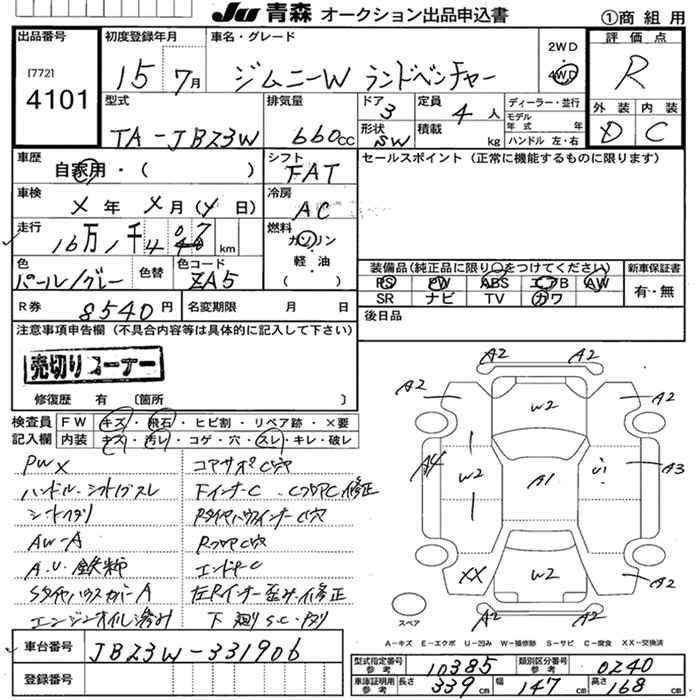 JU 青森 オークション出品申込書 ①商組用
出品番号
[772]
4101
初度登録年月
15 7月
車名・グレード
ジムニーW ランドベンチャー
2WD
4WD
評価点
R
外装 内装
D C
型式
TA-JB23W
排気量
660cc
ドア 3
定員 4人
形状 SW
積載 kg
ディーラー・並行
モデル年式 年
ハンドル 左・右
車歴
自家用・( )
シフト
FAT
セールスポイント(正常に機能するものに限ります)
車検
X年 X月( 日)
冷房
AC
走行
16万1千4 km
燃料
ガソリン
軽・油
( )
色
パール/グレー
色替
色コード
ZA5
R券 8540円
名変期限 月 日
装備品(純正品に限り○をつけてください)
PS PW ABS エアB AW
SR ナビ TV カワ
新車保証書
有・無
後日品
注意事項申告欄(不具合内容等は具体的に記入して下さい)
売切りコーナー
修復歴 有〔箇所 〕
検査員記入欄
FW キズ・飛石・ヒビ割・リペア跡・×要
内装 キズ・汚レ・コゲ・穴・スレ・キレ・破レ
PWX
コアサポC穴
ハンドル・シフトノブスレ
FインナーC・CフロアC、修正
RタイヤハウスインナーC穴
AW-A
RフロアC穴
A.U-鉄粉
エンドPC
SタイヤハウスカバーA
左Rインナー歪み、修正
エンジンオイル滲み
下廻りS.C
A2 A2
A2 A2
W2
A4 W2 A1 U1 A3
XX W2 A2
A2 A2
スペア
A-キズ E-エクボ U-凹み W-補修跡 S-サビ C-腐食 XX-交換済
車台番号
JB23W-331906
登録番号
型式指定番号 参考 10385
類別区分番号 参考 0240
車庫証明用 参考 長さ 339cm 幅 147cm 高さ 168cm